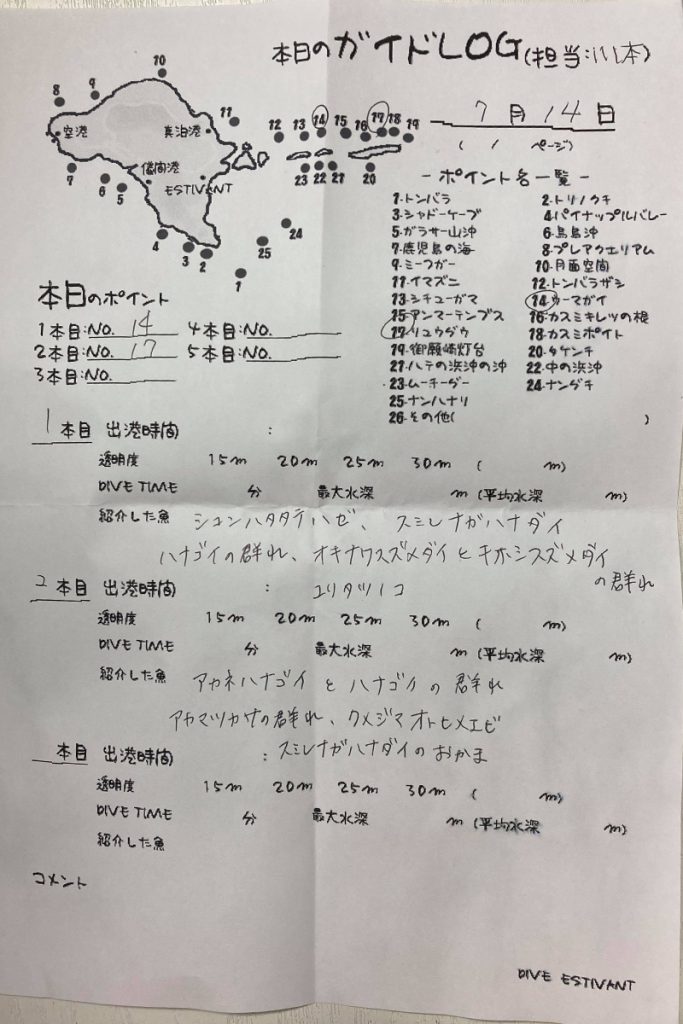 本日のガイドLOG(担当:川本)
7月14日
( 1 ページ)
10
8 9
空港
真泊港
11
12 13 14 15 16 17 18 19
儀間港
ESTIVANT
7 6 5
23 22 21 20
4 3 2
24
25
1
- ポイント名一覧 -
1.トンバラ 2.トリノクチ
3.シャドーケーブ 4.パイナップルバレー
5.ガラサー山沖 6.鳥島沖
7.鹿児島の海 8.プレアクエリアム
9.ミーフガー 10.月面空間
11.イマズニ 12.トンバラザシ
13.シチューガマ 14.ウーマガイ
15.アンマーテンプス 16.カスミキレツの根
17.リュウダウ 18.カスミポイト
19.御願崎灯台 20.タケンチ
21.ハテの浜沖の沖 22.中の浜沖
23.ムーチーダー 24.ナンダキ
25.ナンハナリ
26.その他( )
本日のポイント
1本目:NO. 14 4本目:NO.
2本目:NO. 17 5本目:NO.
3本目:NO.
1本目 出港時間 :
透明度 15m 20m 25m 30m ( m)
DIVE TIME 分 最大水深 m (平均水深 m)
紹介した魚 シュンハタタテハゼ、スミレナガハナダイ
ハナゴイの群れ、オキナワスズメダイとキホシスズメダイ
の群れ
2本目 出港時間 : ユリタツノコ
透明度 15m 20m 25m 30m ( m)
DIVE TIME 分 最大水深 m (平均水深 m)
紹介した魚 アカネハナゴイとハナゴイの群れ
アカマツカサの群れ、クメジマオトヒメエビ
本目 出港時間 : スミレナガハナダイのおかま
透明度 15m 20m 25m 30m ( m)
DIVE TIME 分 最大水深 m (平均水深 m)
紹介した魚
コメント
DIVE ESTIVANT